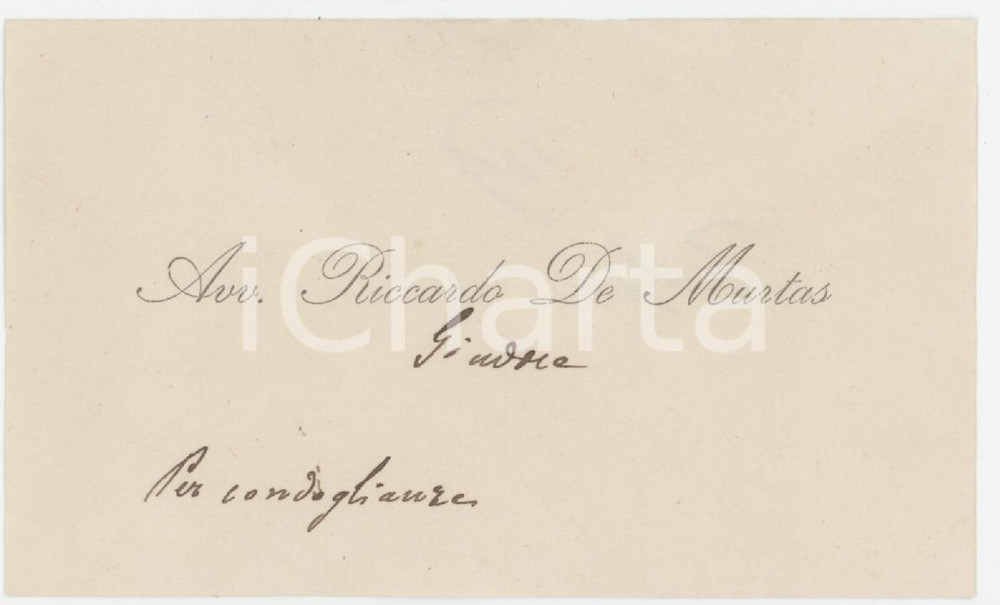 Avv. Riccardo De Murtas
Giudice
Per condoglianze
iCharta